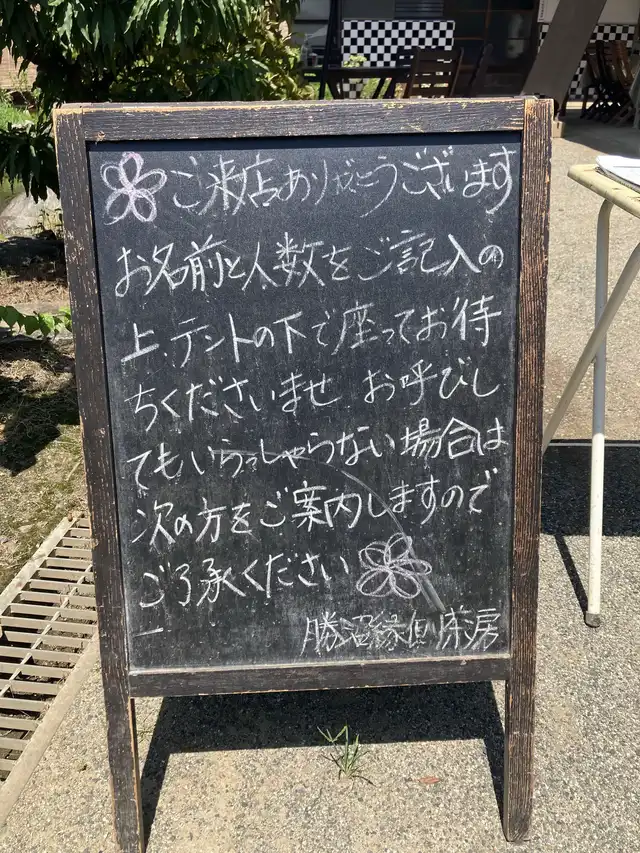 ご来店ありがとうございます
お名前と人数をご記入の
上、テントの下で座ってお待
ちくださいませ お呼びし
てもいらっしゃらない場合は
次の方をご案内しますので
ご了承ください
勝沼縁側茶房